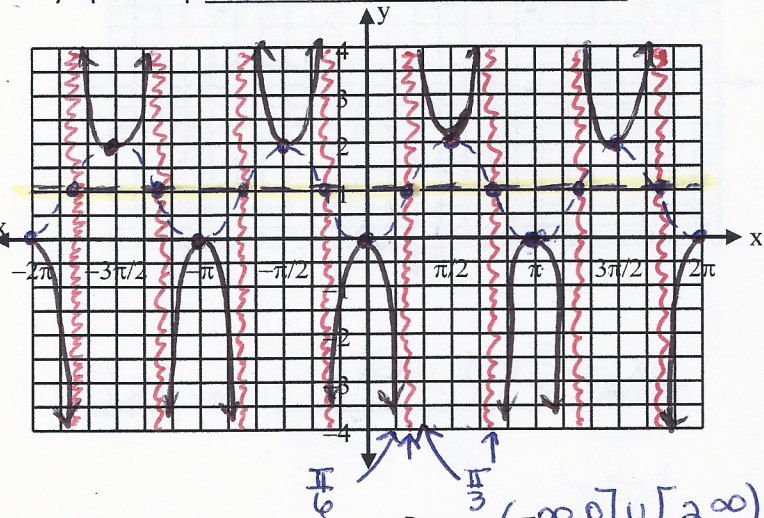 y
4
3
2
1
x x
−2π −3π/2 −π −π/2 π/2 π 3π/2 2π
−1
−2
−3
−4
π/6 π/3
(-∞,0]∪[2,∞)